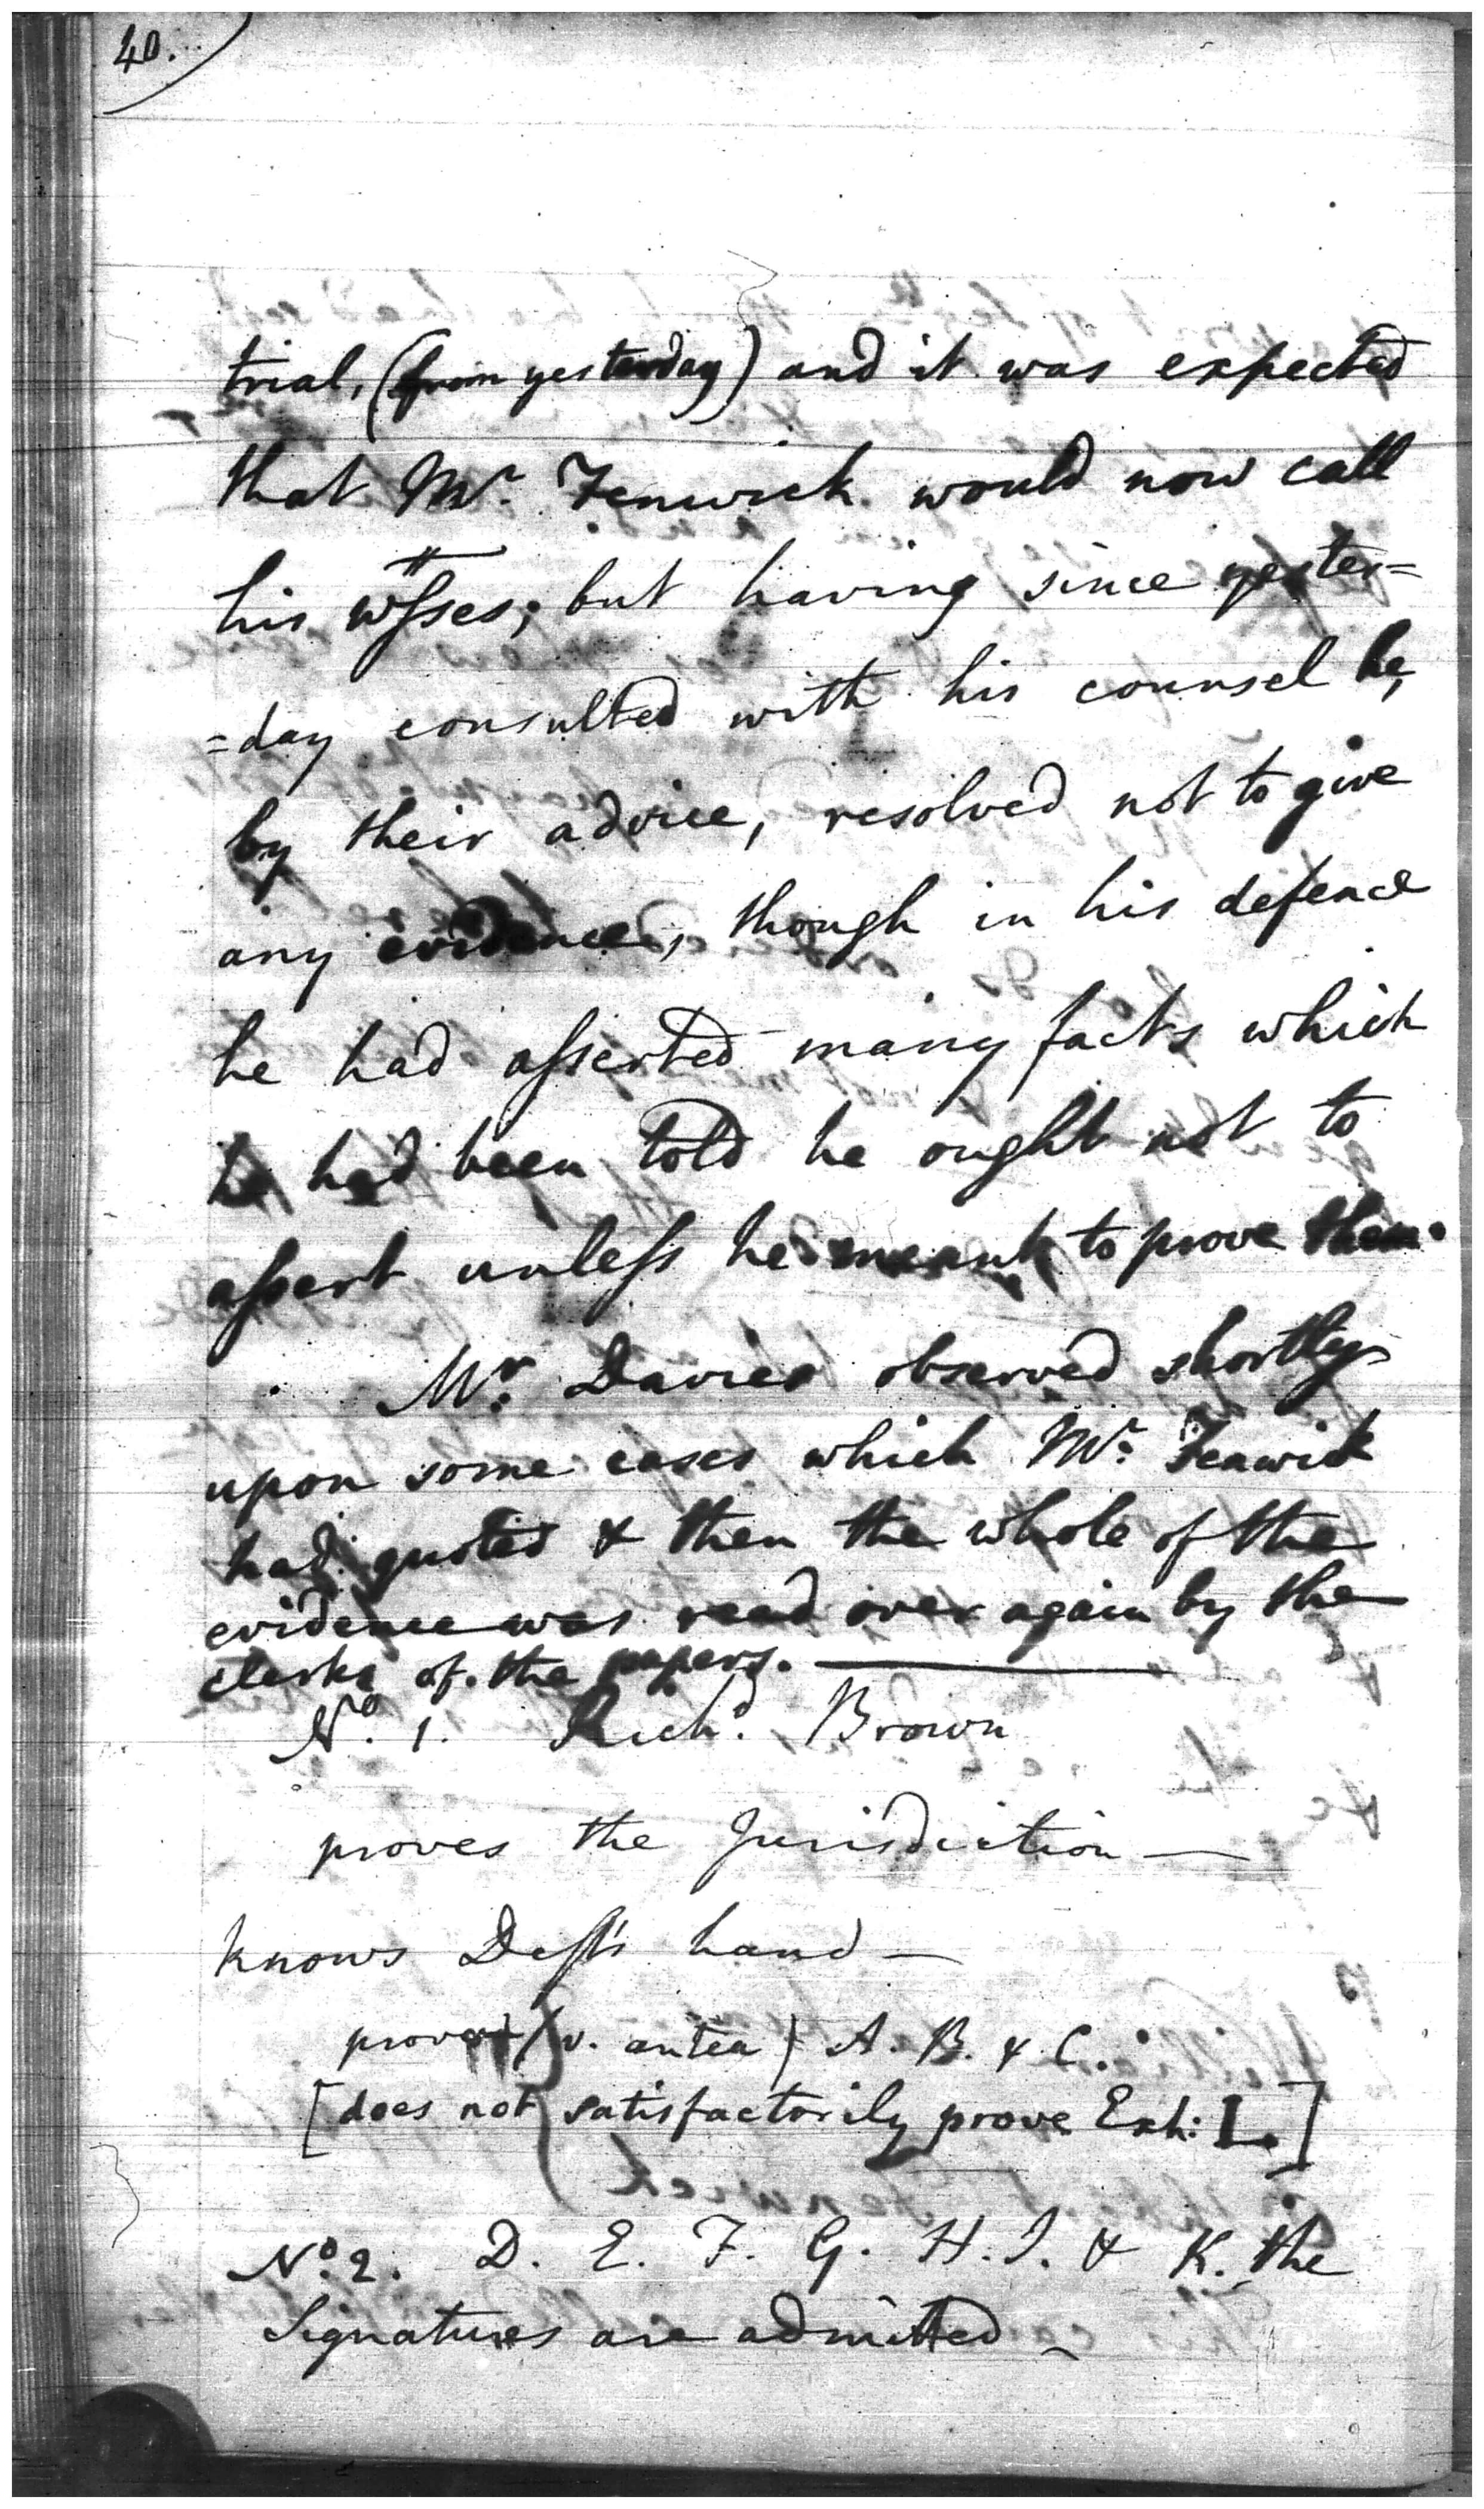 40.
trial, (from yesterday) and it was expected
that Mr. Fenwick would now call
his wſses; but having since yester=
=day consulted with his counsel he,
by their advice, resolved not to give
any evidence, though in his defence
he had aſserted many facts which
he had been told he ought not to
aſsert unleſs he meant to prove them.
Mr. Davies observed shortly
upon some cases which Mr. Fenwick
had quoted & then the whole of the
evidence was read over again by the
clerks of the papers.
No. 1. Richd. Brown
proves the Jurisdiction —
knows Deft's hand —
proves (v. antea) A. B. & C.
[does not satisfactorily prove Exh: L.]
No. 2. D. E. F. G. H. I. & K. the
Signatures are admitted —